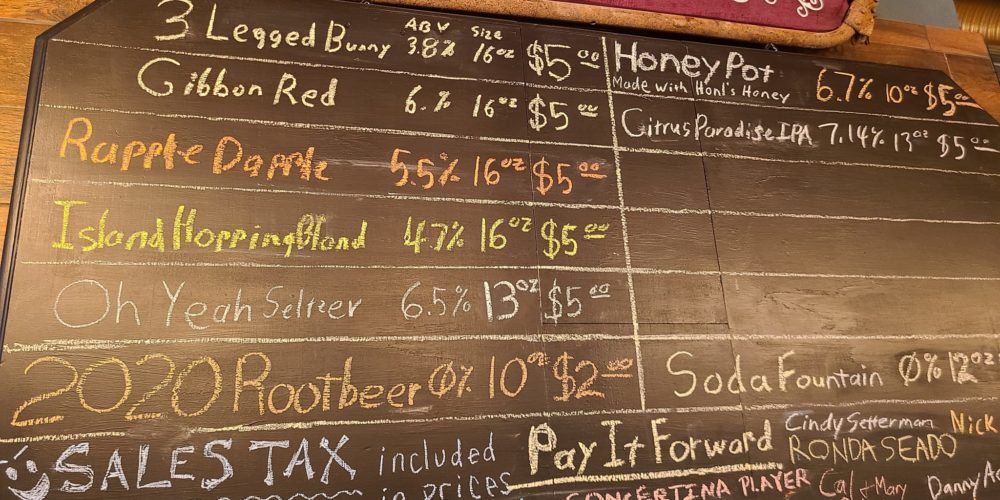 ABV Size
3 Legged Bunny 3.8% 16oz $5.00
Gibbon Red 6.% 16oz $5.00
Rapple Dapple 5.5% 16oz $5.00
Island Hopping Blond 4.7% 16oz $5.00
Oh Yeah Seltzer 6.5% 13oz $5.00
2020 Rootbeer 0% 10oz $2.00
Honey Pot 6.7% 10oz $5.00
Made with Honl's Honey
Citrus Paradise IPA 7.14% 13oz $5.00
Soda Fountain 0% 12oz
SALES TAX included
in prices
Pay It Forward
Cindy Setterman Nick
RONDA SEADO
CONCERTINA PLAYER Cal + Mary Danny A